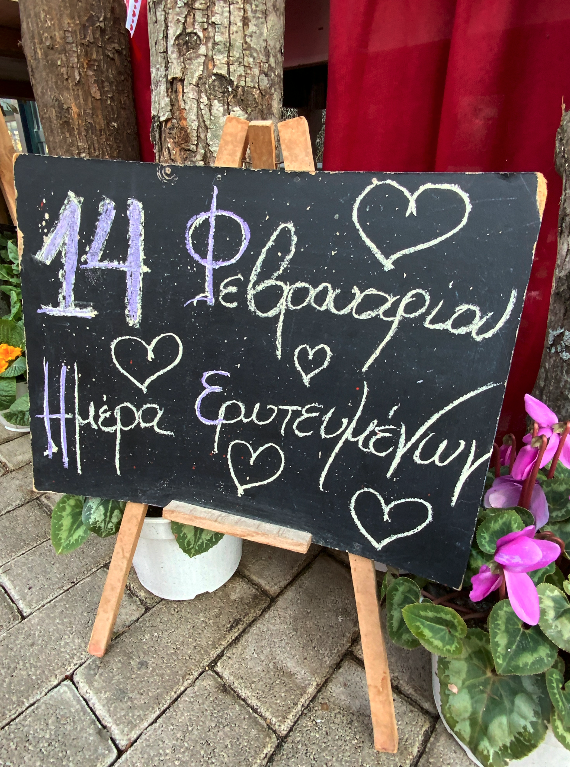 14 Φεβρουαρίου
Ημέρα Ερωτευμένων